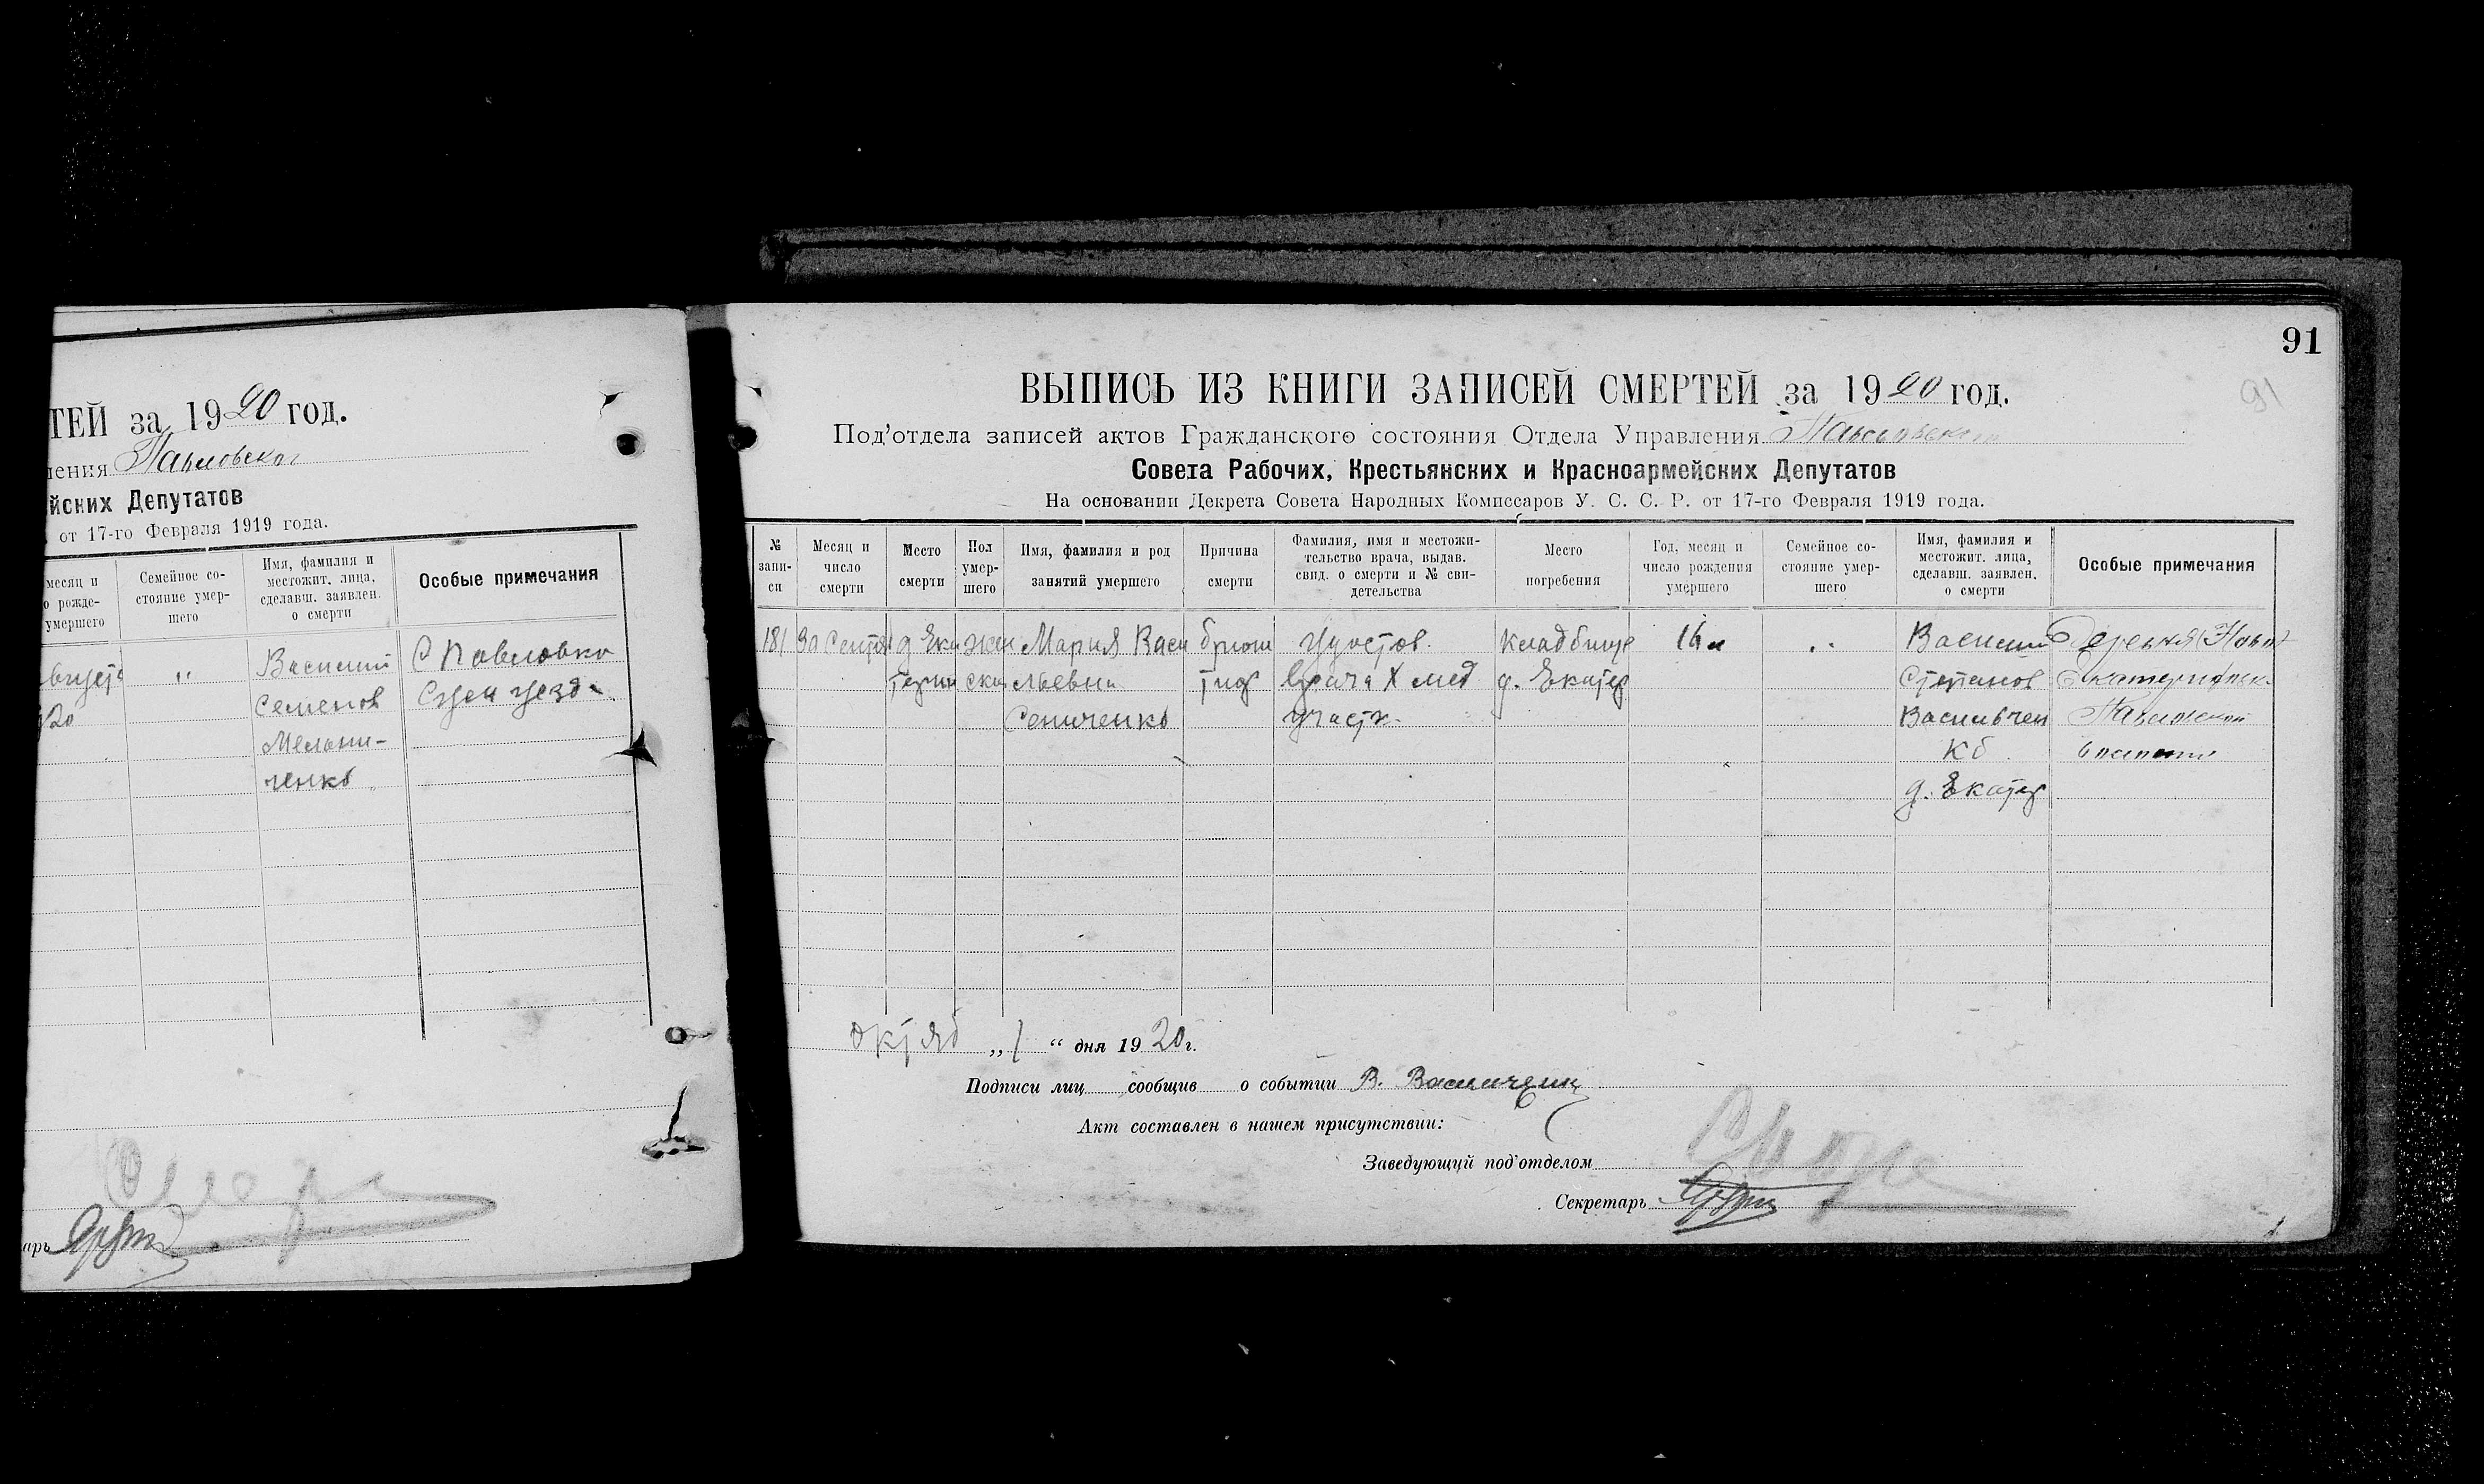 ТЕЙ за 1920 год.
ления Павловског
йских Депутатов
от 17-го Февраля 1919 года.
месяц и
о рожде-
умершего
Семейное со-
стояние умер-
шего
Имя, фамилия и
местожит. лица,
сделавш. заявлен.
о смерти
Особые примечания
Василий
Семенов
Мельни-
ченко
С Павловка
91
ВЫПИСЬ ИЗ КНИГИ ЗАПИСЕЙ СМЕРТЕЙ за 1920 год.
91
Под'отдела записей актов Гражданского состояния Отдела Управления Павловского
Совета Рабочих, Крестьянских и Красноармейских Депутатов
На основании Декрета Совета Народных Комиссаров У. С. С. Р. от 17-го Февраля 1919 года.
№
запи-
си
Месяц и
число
смерти
Место
смерти
Пол
умер-
шего
Имя, фамилия и род
занятий умершего
Причина
смерти
Фамилия, имя и местожи-
тельство врача, выдав.
свид. о смерти и № сви-
детельства
Место
погребения
Год, месяц и
число рождения
умершего
Семейное со-
стояние умер-
шего
Имя, фамилия и
местожит. лица,
сделавш. заявлен.
о смерти
Особые примечания
181
д Ека
терин
жен
ски
Мария Васи
льевна
Сениченко
брюш
тиф
Удостов.
врача X мед
участк.
Кладбище
д. Екатер
16
Василий
Степанов
Васильчен
ко
д. Екатер
Деревня
Октяб „1“ дня 1920 г.
Подписи лиц сообщив о событии В.
Акт составлен в нашем присутствии:
Заведующий под'отделом
Секретарь
арь